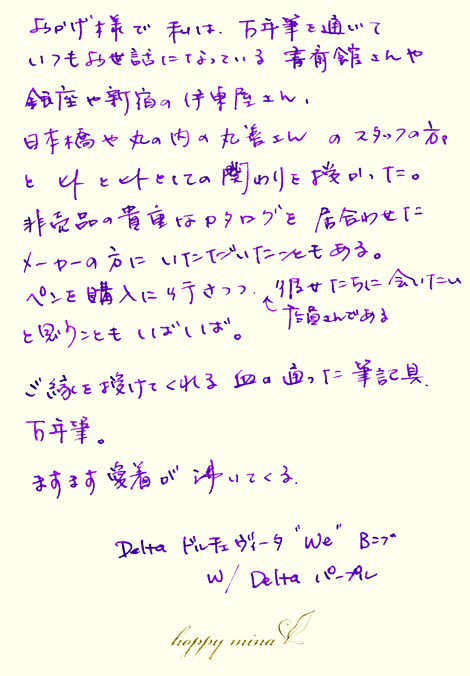 おかげ様で 私は、万年筆を通いて
いつもお世話になっている 書斎館さんや
銀座や新宿の伊東屋さん、
日本橋や丸の内の丸善さん のスタッフの方々
と 人と人としての関わりを授かった。
非売品の貴重なカタログを 居合わせた
メーカーの方に いただいたこともある。
ペンを購入に行きつつ、彼女たちに会いたい
店員さんである
と思うことも いばいば。
ご縁を授けてくれる 血の通った筆記具、
万年筆。
ますます愛着が 沸いてくる。
Delta ドルチェヴィータ "We" Bニブ
W/ Delta パープル
happy mina